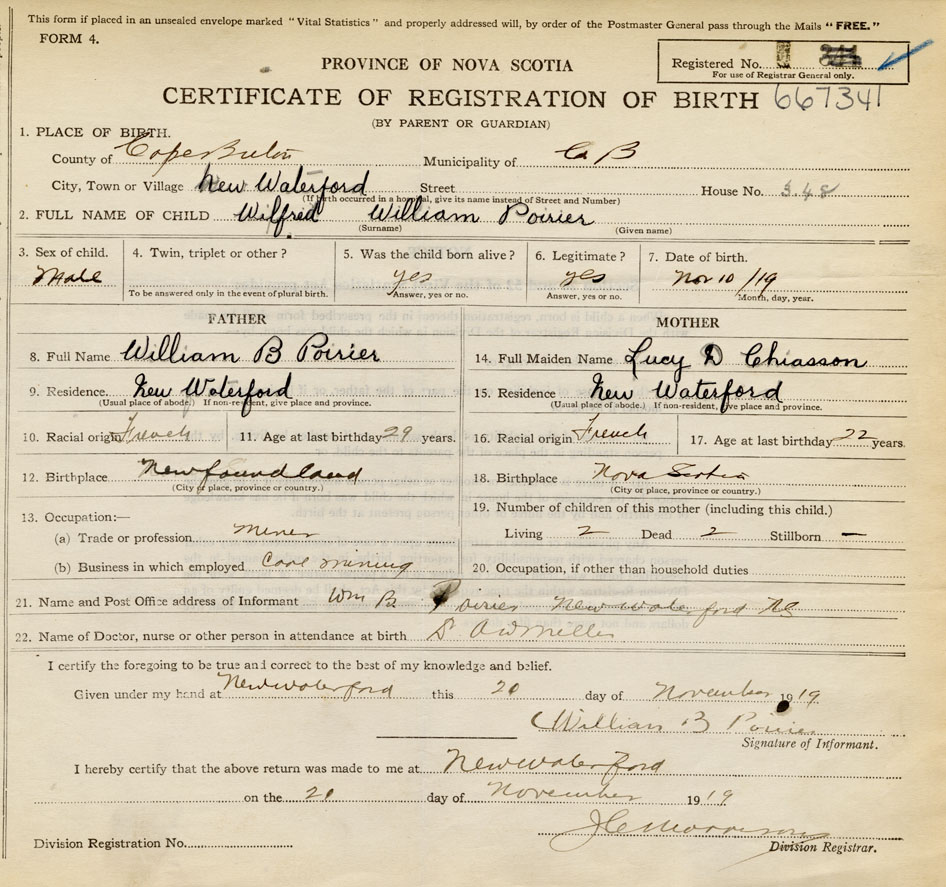 This form if placed in an unsealed envelope marked "Vital Statistics" and properly addressed will, by order of the Postmaster General pass through the Mails "FREE."
FORM 4.
Registered No.
For use of Registrar General only.
PROVINCE OF NOVA SCOTIA
CERTIFICATE OF REGISTRATION OF BIRTH 667341
(BY PARENT OR GUARDIAN)
1. PLACE OF BIRTH.
County of Cape Breton Municipality of C B
City, Town or Village New Waterford Street House No. 348
(If birth occurred in a hospital, give its name instead of Street and Number)
2. FULL NAME OF CHILD Wilfred William Poirier
(Surname) (Given name)
3. Sex of child. 4. Twin, triplet or other? 5. Was the child born alive? 6. Legitimate? 7. Date of birth.
Male yes yes Nov 10/19
To be answered only in the event of plural birth. Answer, yes or no. Answer, yes or no. Month, day, year.
FATHER MOTHER
8. Full Name William B Poirier 14. Full Maiden Name Lucy D Chiasson
9. Residence. New Waterford 15. Residence New Waterford
(Usual place of abode.) If non-resident, give place and province. (Usual place of abode.) If non-resident, give place and province.
10. Racial origin French 11. Age at last birthday 29 years. 16. Racial origin French 17. Age at last birthday 22 years.
12. Birthplace Newfoundland 18. Birthplace Nova Scotia
(City or place, province or country.) (City or place, province or country.)
13. Occupation:— 19. Number of children of this mother (including this child.)
(a) Trade or profession. miner Living 2 Dead 2 Stillborn —
(b) Business in which employed Coal mining 20. Occupation, if other than household duties
21. Name and Post Office address of Informant Wm B. Poirier New Waterford NS
22. Name of Doctor, nurse or other person in attendance at birth
I certify the foregoing to be true and correct to the best of my knowledge and belief.
Given under my hand at New Waterford this 20 day of November 1919
William B Poirier
Signature of Informant.
I hereby certify that the above return was made to me at New Waterford
on the 20 day of November 1919
J C Morrison
Division Registration No. Division Registrar.